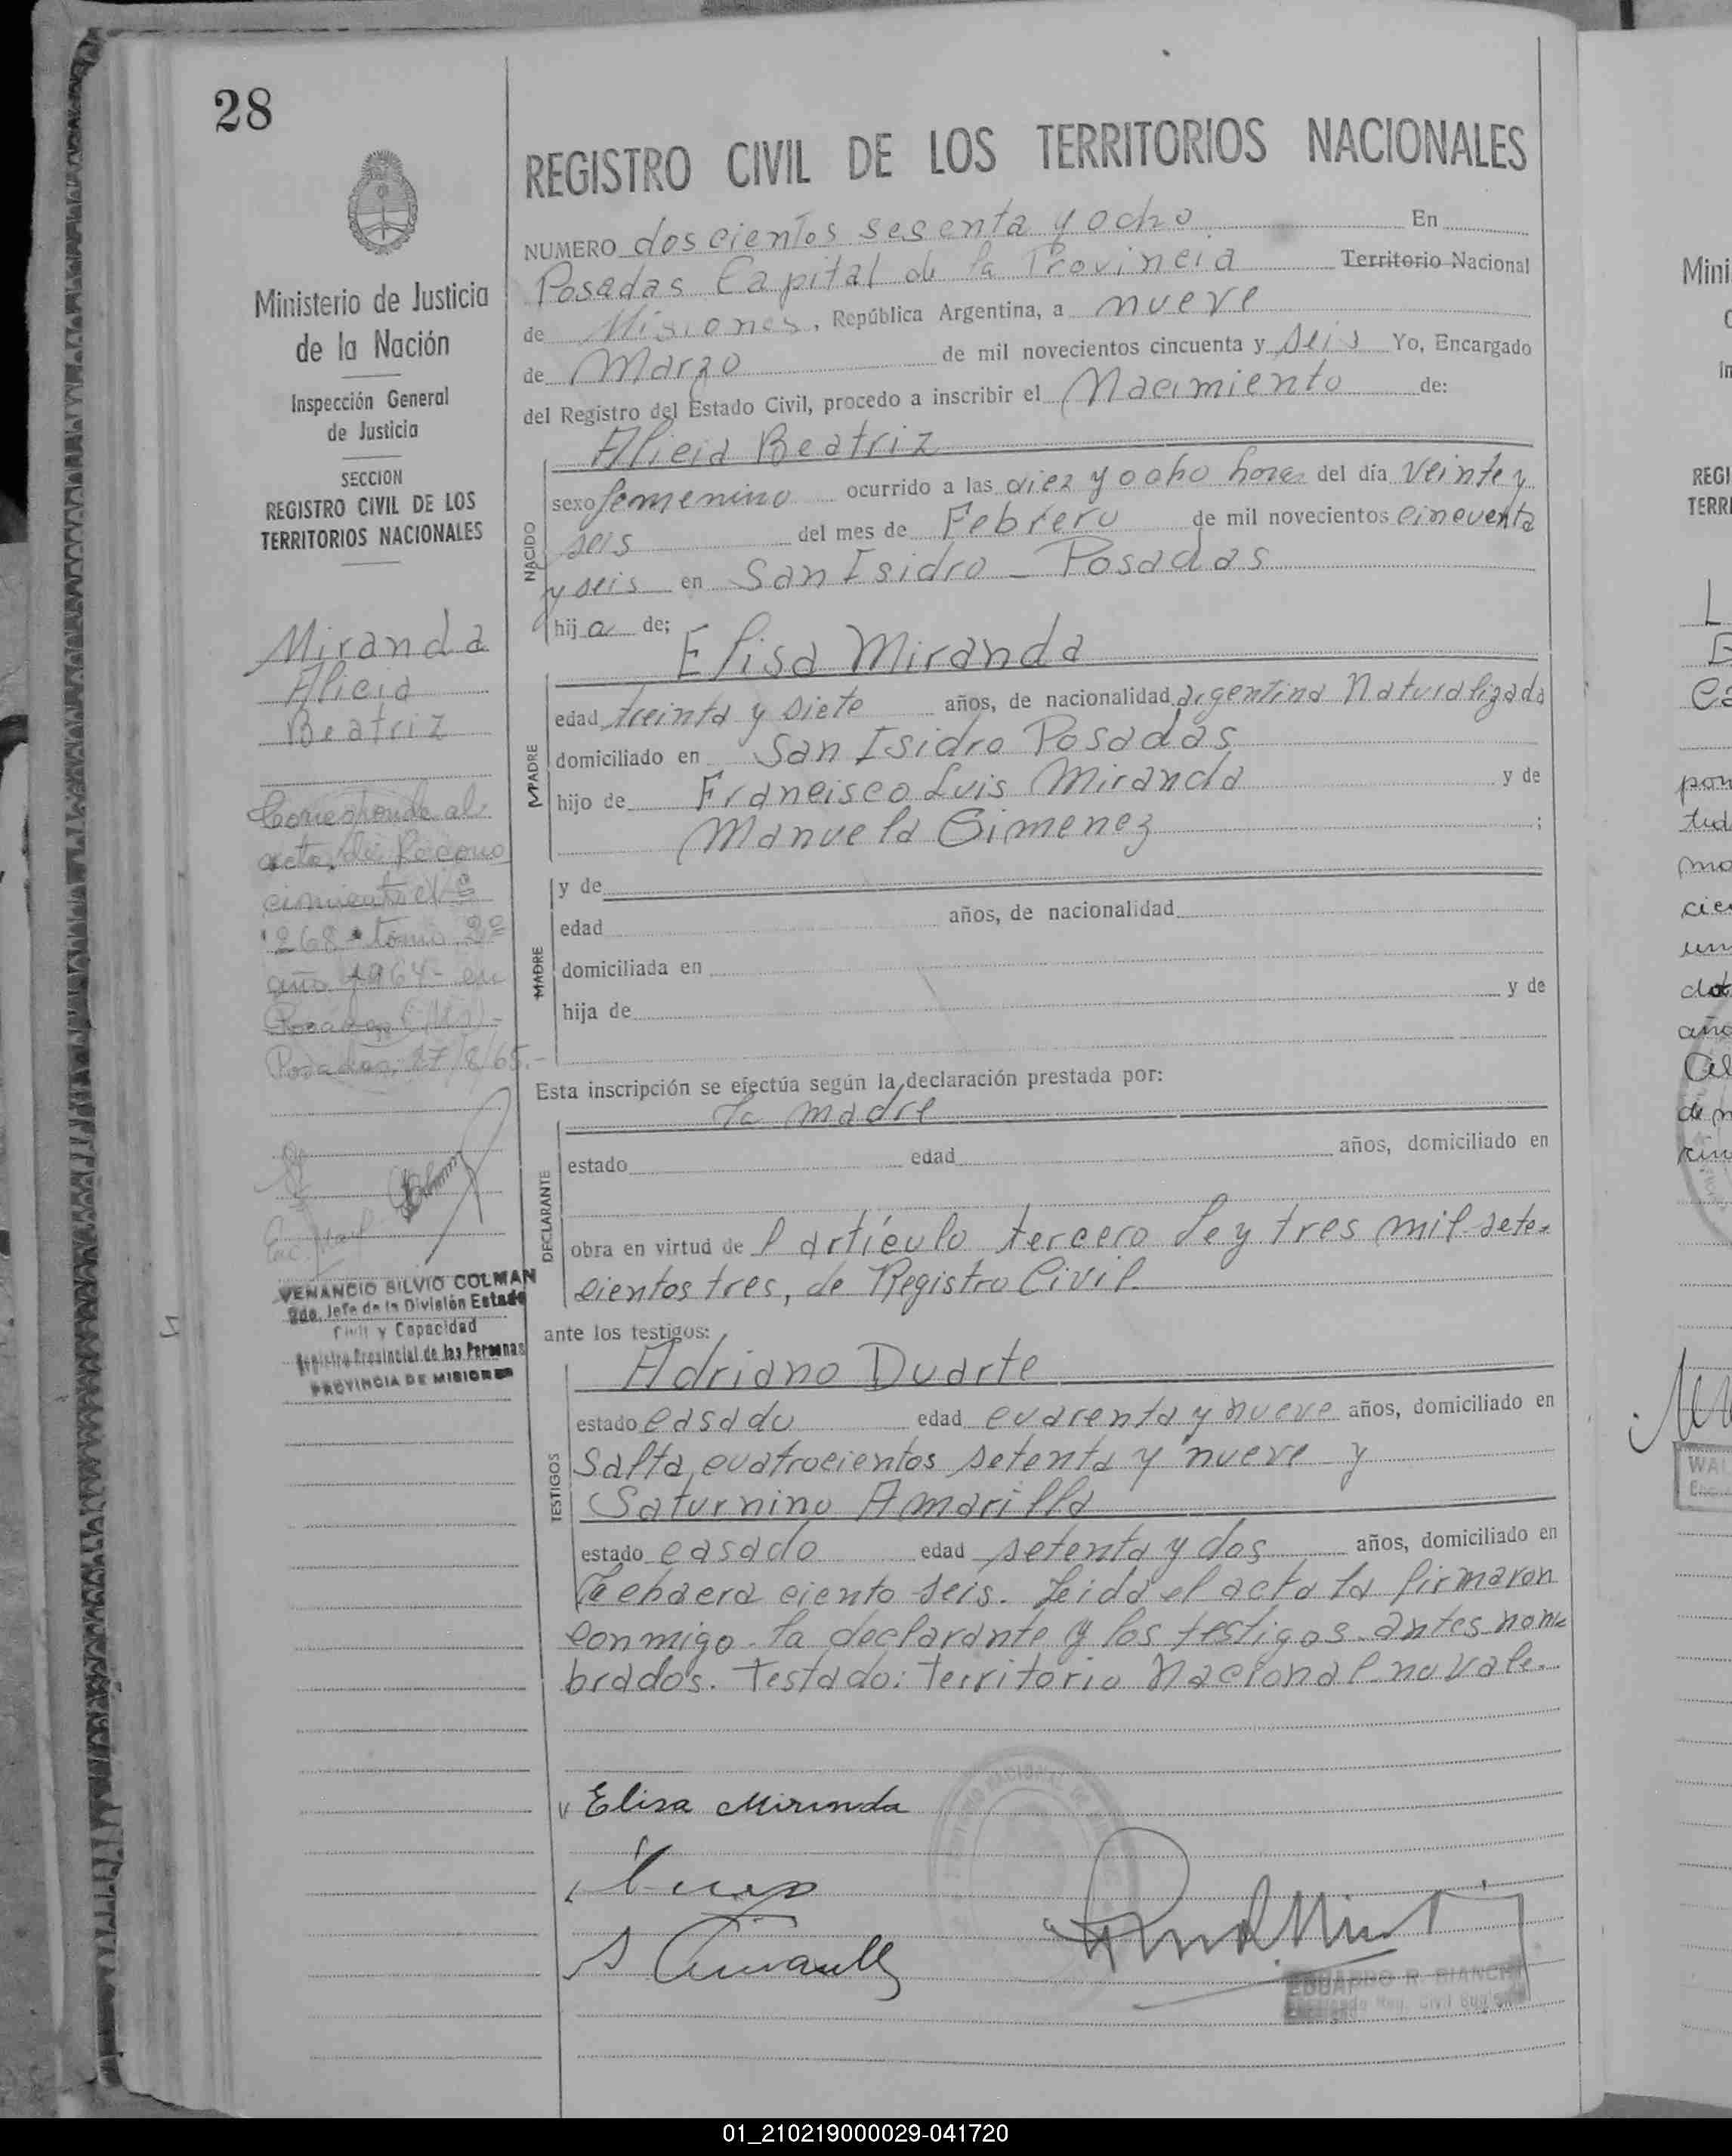 28
Ministerio de Justicia
de la Nación
Inspección General
de Justicia
SECCION
REGISTRO CIVIL DE LOS
TERRITORIOS NACIONALES
Miranda
Alicia
Beatriz
Corresponde al
acta de Recono
cimiento Nº
268 tomo 2º
año 1964- en
Posadas (Ms)-
Posadas, 27/8/65.-
VENANCIO SILVIO COLMAN
2do. Jefe de la División Estado
Civil y Capacidad
Registro Provincial de las Personas
PROVINCIA DE MISIONES
REGISTRO CIVIL DE LOS TERRITORIOS NACIONALES
NUMERO doscientos sesenta y ocho En
Posadas Capital de la Provincia Territorio Nacional
de Misiones, República Argentina, a nueve
de Marzo de mil novecientos cincuenta y seis Yo, Encargado
del Registro del Estado Civil, procedo a inscribir el Nacimiento de:
Alicia Beatriz
NACIDO
sexo femenino ocurrido a las diez y ocho horas del día veinte y
seis del mes de Febrero de mil novecientos cincuenta
y seis en San Isidro - Posadas
hija de;
Elisa Miranda
MADRE
edad treinta y siete años, de nacionalidad argentina Naturalizada
domiciliado en San Isidro Posadas
hijo de Francisco Luis Miranda y de
Manuela Gimenez ;
y de
MADRE
edad años, de nacionalidad
domiciliada en
hija de y de
Esta inscripción se efectúa según la declaración prestada por:
la madre
DECLARANTE
estado edad años, domiciliado en
obra en virtud de l artículo tercero Ley tres mil sete-
cientos tres, de Registro Civil.
ante los testigos:
Adriano Duarte
TESTIGOS
estado casado edad cuarenta y nueve años, domiciliado en
Salta cuatrocientos setenta y nueve y
Saturnino Amarilla
estado casado edad setenta y dos años, domiciliado en
ciento seis. Leida el acta la firmaron
conmigo la declarante y los testigos antes nom-
brados. Testado: Territorio Nacional no vale.
Elisa Miranda
EDUARDO R. BIANCHI
01_210219000029-041720